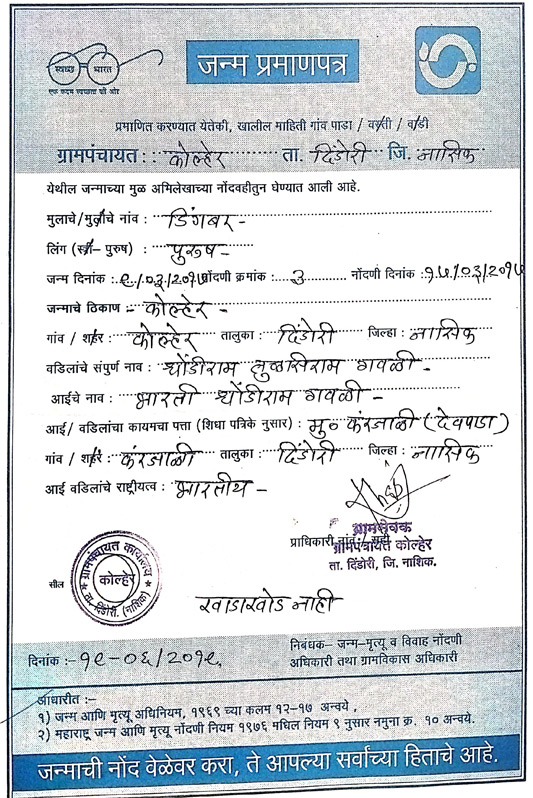 स्वच्छ भारत
एक कदम स्वच्छता की ओर
जन्म प्रमाणपत्र
प्रमाणित करण्यात येतेकी, खालील माहिती गांव पाडा / वस्ती / वाडी
ग्रामपंचायत : : कोल्हेर ता. दिंडोरी जि. नासिक
येथील जन्माच्या मुळ अभिलेखाच्या नोंदवहीतुन घेण्यात आली आहे.
मुलाचे/मुलीचे नांव : डिगंबर -
लिंग (स्त्री– पुरुष) : पुरुष -
जन्म दिनांक : ९/०३/२०१७ नोंदणी क्रमांक : ३ नोंदणी दिनांक : १५/०३/२०१७
जन्माचे ठिकाण - कोल्हेर -
गांव / शहर : कोल्हेर तालुका : दिंडोरी जिल्हा : नासिक
वडिलांचे संपुर्ण नाव : धोंडीराम तुळसिराम गवळी -
आईचे नाव : भारती धोंडीराम गवळी -
आई/ वडिलांचा कायमचा पत्ता (शिधा पत्रिके नुसार) : मु० करंजाळी (देवपाडा)
गांव / शहर : करंजाळी तालुका : दिंडोरी जिल्हा : नासिक
आई वडिलांचे राष्ट्रीयत्व : भारतीय -
प्राधिकारी नांव / सही
ग्रामसेवक
ग्रामपंचायत कोल्हेर
ता. दिंडोरी, जि. नाशिक.
सील
ग्रामपंचायत कार्यालय
कोल्हेर
ता. दिंडोरी. (नाशिक)
खाडाखोड नाही
दिनांक :- १९-०६/२०१९
निबंधक– जन्म–मृत्यू व विवाह नोंदणी
अधिकारी तथा ग्रामविकास अधिकारी
आधारीत :–
१) जन्म आणि मृत्यू अधिनियम, १९६९ च्या कलम १२–१७ अन्वये ,
२) महाराष्ट्र जन्म आणि मृत्यू नोंदणी नियम १९७६ मधिल नियम ९ नुसार नमुना क्र. १० अन्वये.
जन्माची नोंद वेळेवर करा, ते आपल्या सर्वांच्या हिताचे आहे.